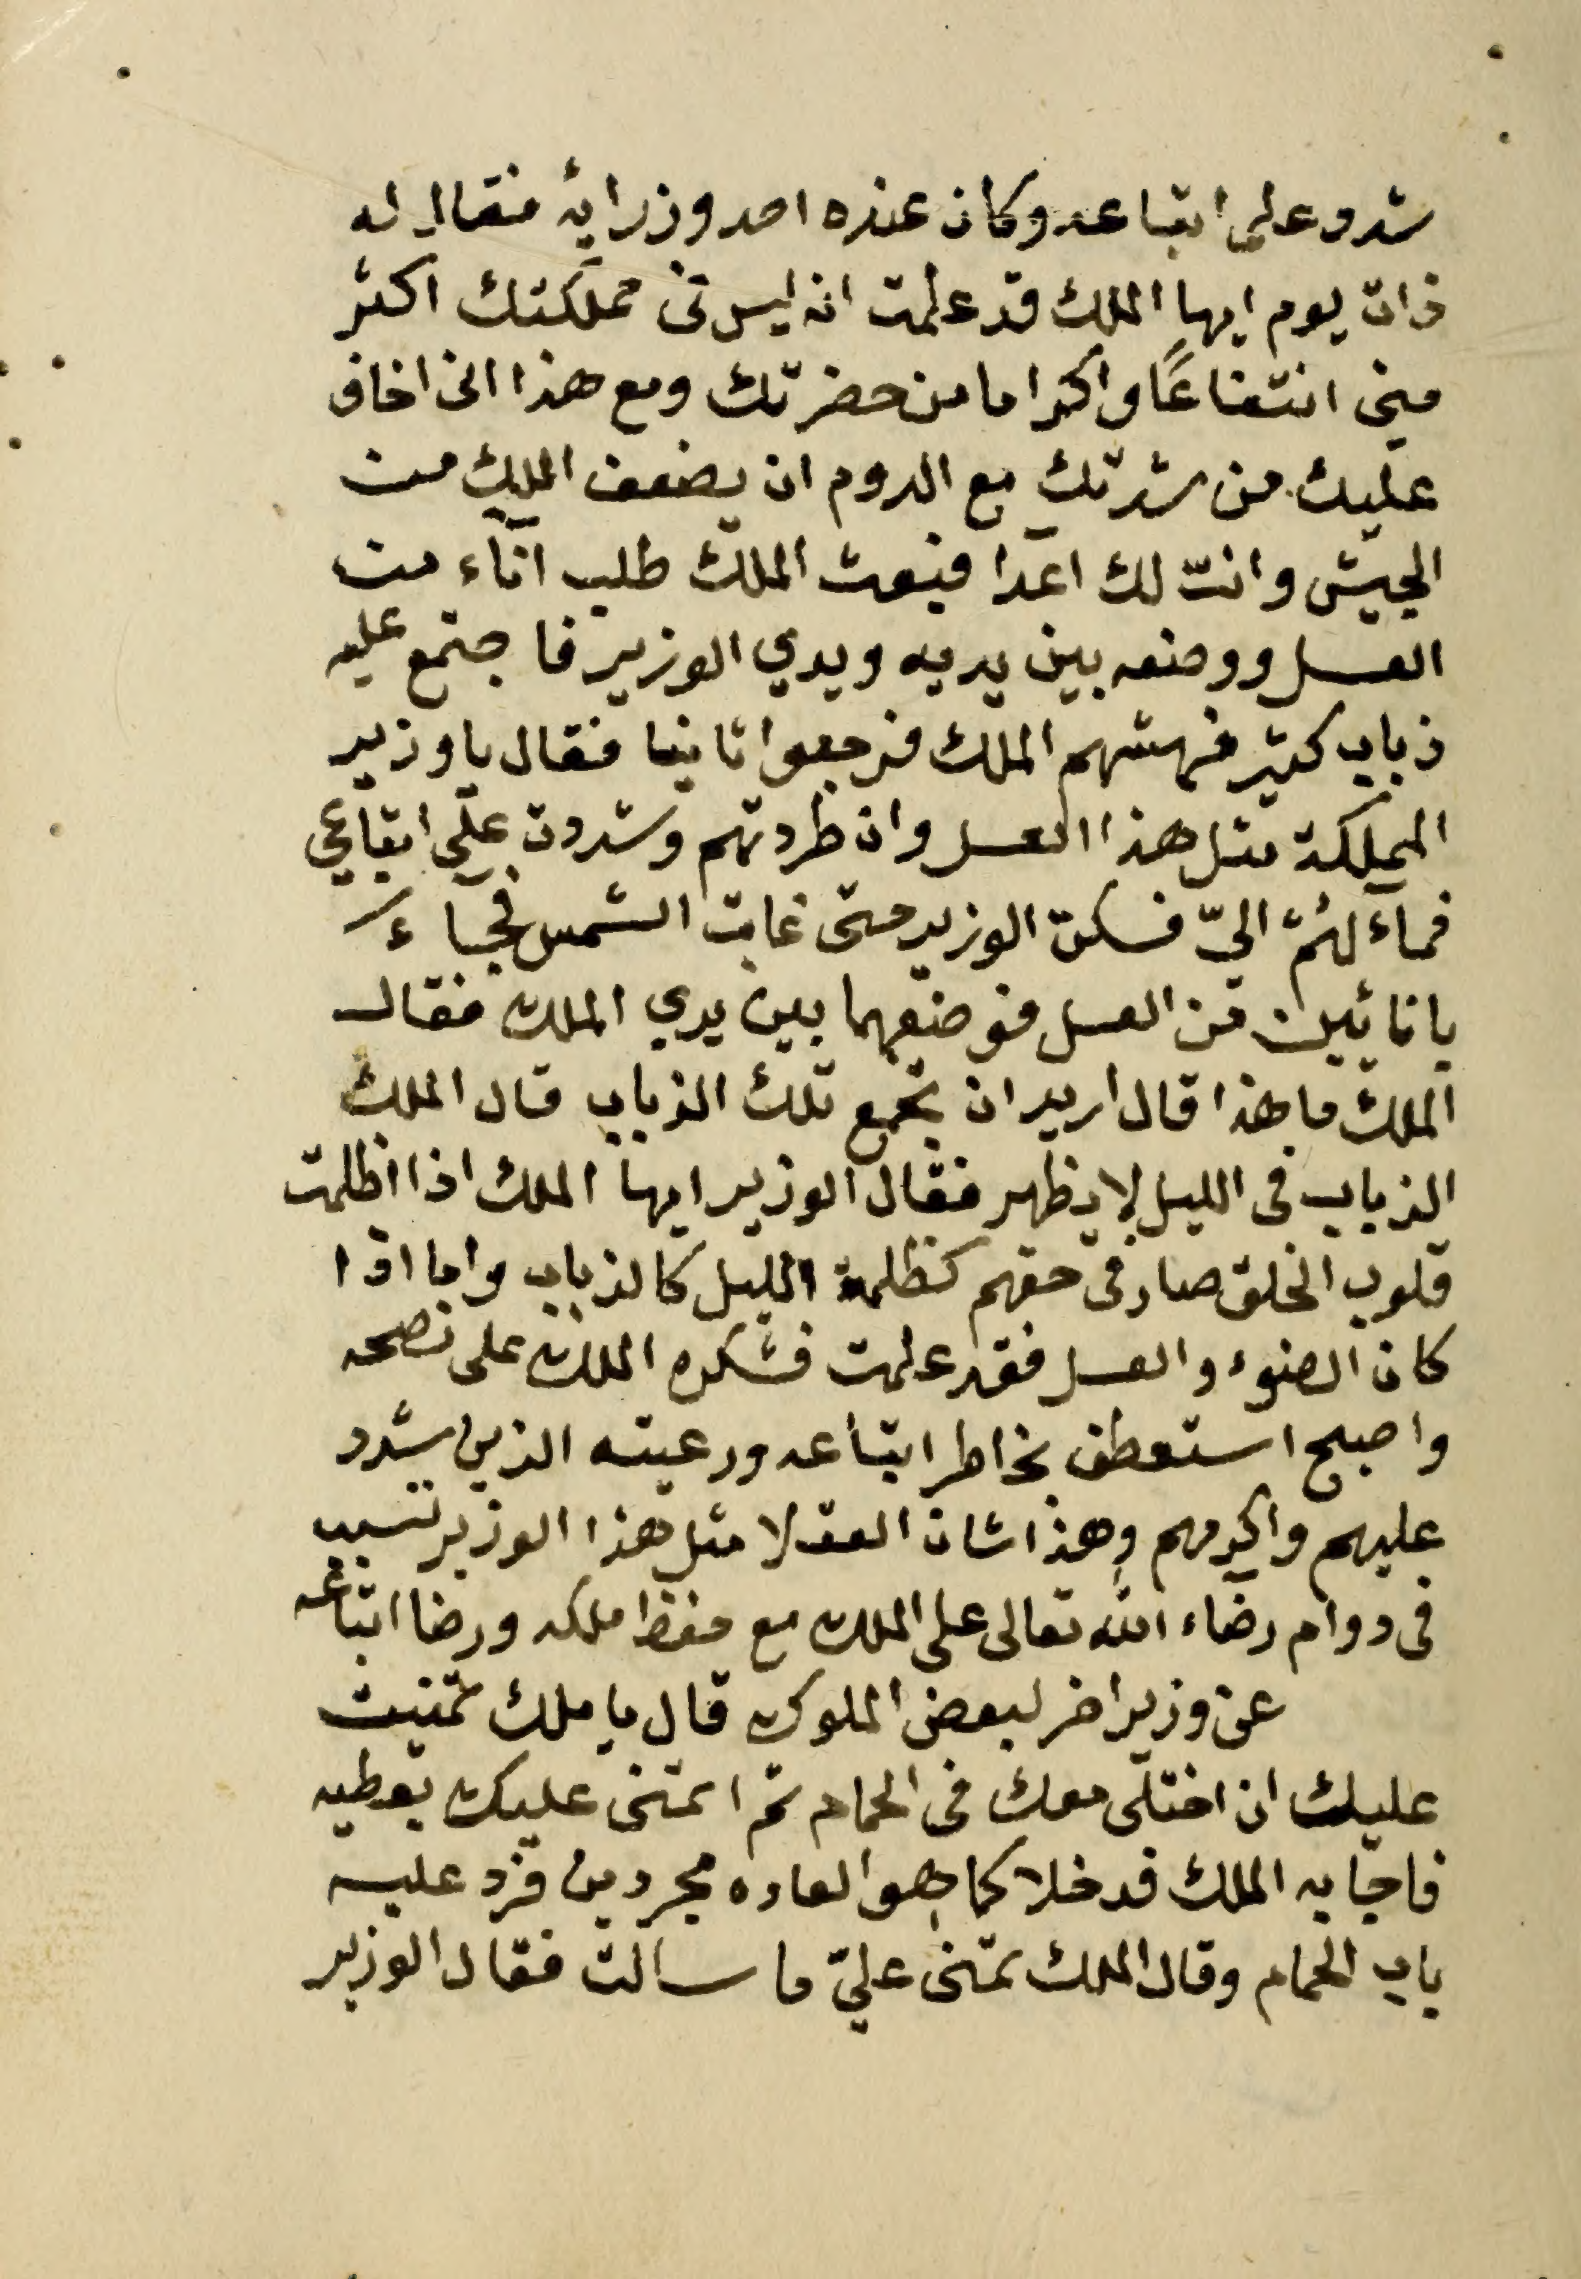 شدد على اتباعه وكان عنده احد وزرايه فقال له
ذات يوم ايها الملك قد علمت انه ليس في مملكتك اكثر
مني انتفاعًا واكراما من حضرتك ومع هذا اني اخاف
عليك من شدتك مع الدوم ان يضعف الملك من
الجيش وانت لك اعدا فبعث الملك طلب اناء من
العسل ووضعه بين يديه ويدي الوزير فاجتمع عليه
ذباب كثير فهشهم الملك فرجعوا ثانيا فقال يا وزير
المملكة مثل هذا العسل وان طردتهم وشددت على اتباعي
فماء لهُمْ اليّ فسكت الوزير حتى غابت الشمس فجاء
بانائين من العسل فوضعهما بين يدي الملك فقال
الملك ما هذا قال اريد ان نجمع تلك الذباب قال الملك
الذباب في الليل لا يظهر فقال الوزير ايها الملك اذا اظلمت
قلوب الخلق صار في حقهم كظلمة الليل كالذباب واما اذا
كان الضوء والعسل فقد علمت فشكره الملك على نصحه
واصبح استعطف بخاطر اتباعه ورعيته الذين شدد
عليهم واكرمهم وهذا شان العقلا مثل هذا الوزير تسبب
في دوام رضاء الله تعالى على الملك مع حفظ ملكه ورضا اتباعه
عن وزير اخر لبعض الملوك قال يا ملك تمنيت
عليك ان اختلى معك في الحمام ثم اتمنى عليك تعطيه
فاجابه الملك فدخلا كما هو العاده مجردين فرد عليه
باب الحمام وقال الملك تمنى عليّ ما سالت فقال الوزير